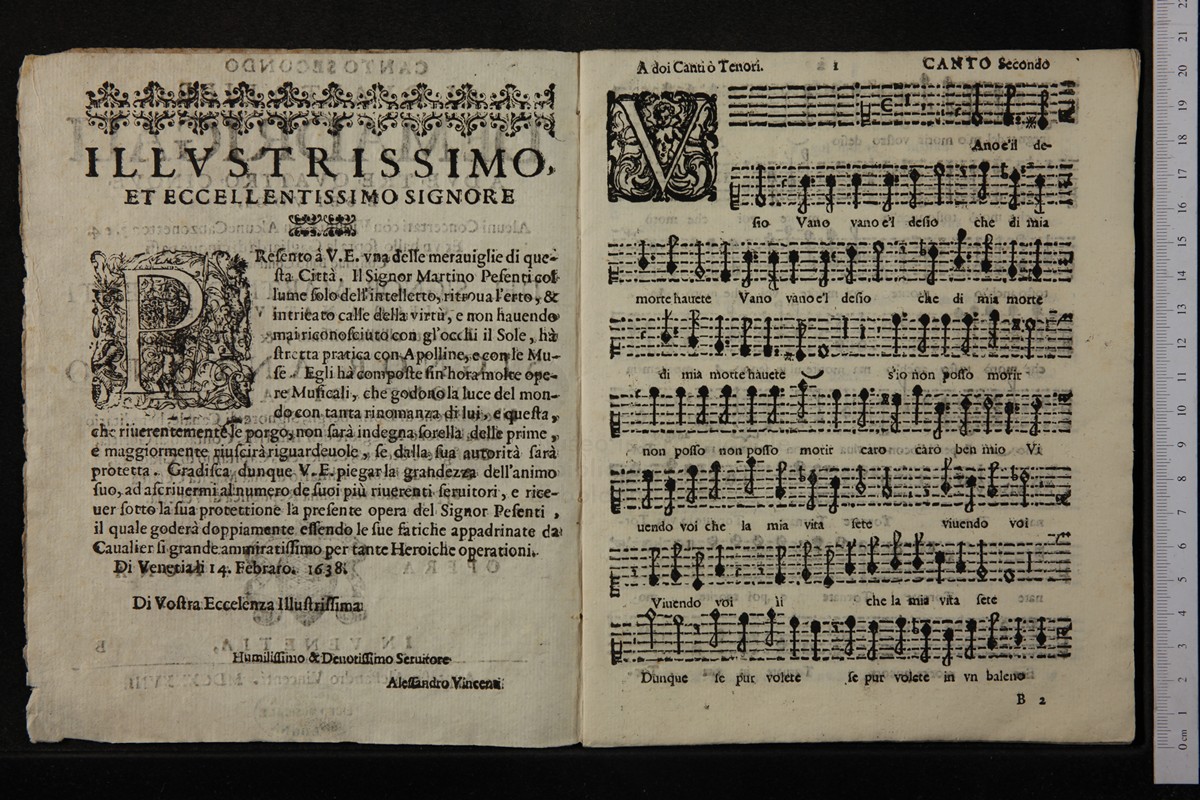 ILLVSTRISSIMO,
ET ECCELLENTISSIMO SIGNORE
PResento à V. E. vna delle merauiglie di que-
sta Città. Il Signor Martino Pesenti col
lume solo dell'intelletto, ritroua l'erto, &
intricato calle della virtù, e non hauendo
mai riconosciuto con gl'occhi il Sole, hà
stretta pratica con Apolline, e con le Mu-
se. Egli hà composte sin'hora molte ope-
re Musicali, che godono la luce del mon-
do con tanta rinomanza di lui, e questa,
che riuerentemente le porgo, non sarà indegna sorella delle prime,
e maggiormente riuscirà riguardeuole, se dalla sua autorità sarà
protetta. Gradisca dunque V. E. piegar la grandezza dell'animo
suo, ad ascriuermi al numero de suoi più riuerenti seruitori, e rice-
uer sotto la sua protettione la presente opera del Signor Pesenti,
il quale goderà doppiamente essendo le sue fatiche appadrinate da
Caualier si grande ammiratissimo per tante Heroiche operationi.
Di Venetia li 14. Febraro. 1638.
Di Vostra Eccelenza Illustrissima
Humilissimo & Deuotissimo Seruitore
Alessandro Vincenti.
A doi Canti ò Tenori. 1 CANTO Secondo
VAno e'il de-
sio Vano vano e'l desio che di mia
morte hauete Vano vano e'l desio che di mia morte
di mia morte hauete s'io non posso morir
non posso non posso morir caro caro ben mio Vi
uendo voi che la mia vita sete viuendo voi
Viuendo voi ii che la mia vita sete
Dunque se pur volete se pur volete in vn baleno
B 2